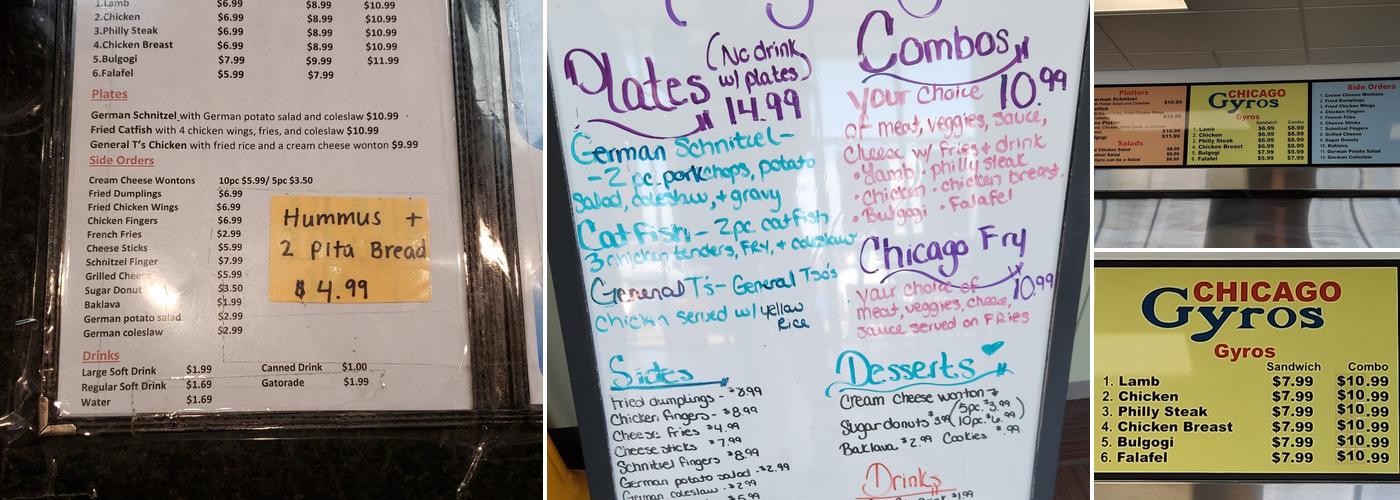 1.Lamb $6.99 $8.99 $10.99
2.Chicken $6.99 $8.99 $10.99
3.Philly Steak $6.99 $8.99 $10.99
4.Chicken Breast $6.99 $8.99 $10.99
5.Bulgogi $7.99 $9.99 $11.99
6.Falafel $5.99 $7.99
Plates
German Schnitzel with German potato salad and coleslaw $10.99
Fried Catfish with 4 chicken wings, fries, and coleslaw $10.99
General T's Chicken with fried rice and a cream cheese wonton $9.99
Side Orders
Cream Cheese Wontons 10pc $5.99/ 5pc $3.50
Fried Dumplings $6.99
Fried Chicken Wings $6.99
Chicken Fingers $6.99
French Fries $2.99
Cheese Sticks $5.99
Schnitzel Finger $7.99
Grilled Cheese $5.99
Sugar Donut $3.50
Baklava $1.99
German potato salad $2.99
German coleslaw $2.99
Hummus +
2 Pita Bread
$ 4.99
Drinks
Large Soft Drink $1.99 Canned Drink $1.00
Regular Soft Drink $1.69 Gatorade $1.99
Water $1.69
Plates (No drink w/ plates)
14.99
German Schnitzel-
-2 pc. porkchops, potato
salad, coleslaw, + gravy
Catfish - 2pc. catfish
3 chicken tenders, FRY, + coleslaw
General T's - General Tso's
chicken served w/ yellow
Rice
Sides
Fried dumplings - $8.99
Chicken fingers - $8.99
Cheese fries $4.99
Cheese sticks $7.99
Schnitzel fingers $8.99
German potato salad - $2.99
German coleslaw - $2.99
Combos
your choice 10.99
of meat, veggies, sauce,
cheese w/ fries + drink
·lamb ·philly steak
·chicken ·chicken breast
·Bulgogi ·Falafel
Chicago Fry
your choice of 10.99
meat, veggies, cheese,
sauce served on FRies
Desserts
Cream cheese wonton
(5pc. $3.99)
Sugar donuts $3.99 10pc. $6.99)
Baklava $2.99 Cookies $.99
Drinks
Platters
German Schnitzel
$10.99
Salads
CHICAGO
Gyros
Gyros
Sandwich Combo
1. Lamb $6.99 $8.99
2. Chicken $6.99 $8.99
3. Philly Steak $6.99 $8.99
4. Chicken Breast $6.99 $8.99
5. Bulgogi $7.99 $9.99
6. Falafel $5.99 $7.99
Side Orders
1. Cream Cheese Wontons
2. Fried Dumplings
3. Fried Chicken Wings
4. Chicken Fingers
5. French Fries
6. Cheese Sticks
7. Schnitzel Fingers
8. Grilled Cheese
9. Sugar Donuts
10. Baklava
11. German Potato Salad
12. German Coleslaw
CHICAGO
Gyros
Gyros
Sandwich Combo
1. Lamb $7.99 $10.99
2. Chicken $7.99 $10.99
3. Philly Steak $7.99 $10.99
4. Chicken Breast $7.99 $10.99
5. Bulgogi $7.99 $10.99
6. Falafel $7.99 $10.99